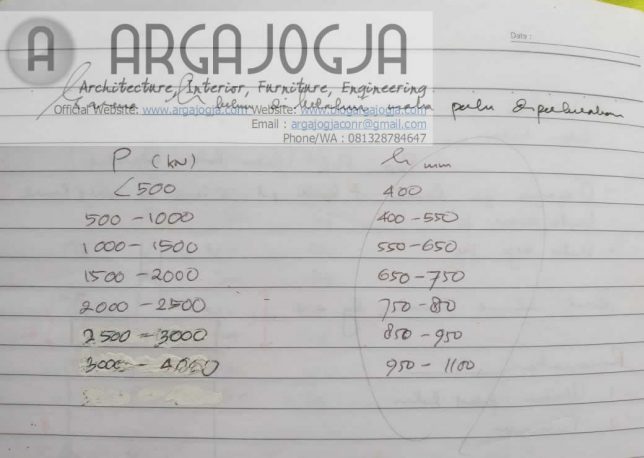 A ARGAJOGJA
Date :
Architecture, Interior, Furniture, Engineering
Official Website: www.argajogja.com Website: www.blogargajogja.com
Email : argajogjaconr@gmail.com
Phone/WA : 081328784647
h belum di ketahui maka perlu diperkirakan
P (kN) h mm
<500 400
500 - 1000 400 - 550
1000 - 1500 550 - 650
1500 - 2000 650 - 750
2000 - 2500 750 - 850
2500 - 3000 850 - 950
3000 - 4000 950 - 1100